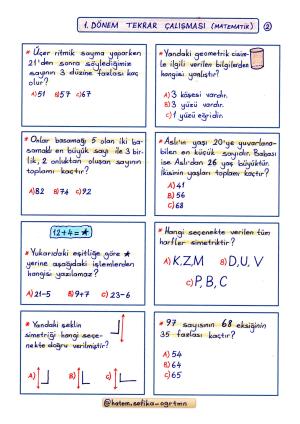 1. DÖNEM TEKRAR ÇALIŞMASI (MATEMATİK)
2
* Üçer ritmik sayma yaparken
21'den sonra söylediğimiz
sayının 3 düzine fazlası kaç
olur?
A) 51 B) 57 C) 67
* Yandaki geometrik cisim-
le ilgili verilen bilgilerden
hangisi yanlıştır?
A) 3 köşesi vardır.
B) 3 yüzü vardır.
C) 1 yüzü eğridir.
* Onlar basamağı 5 olan iki ba-
samaklı en büyük sayı ile 3 bir-
lik, 2 onluktan oluşan sayının
toplamı kaçtır?
A) 82 B) 74 C) 92
* Aslı'nın yaşı 20'ye yuvarlana-
bilen en küçük sayıdır. Babası
ise Aslı'dan 26 yaş büyüktür.
İkisinin yaşları toplamı kaçtır?
A) 41
B) 56
C) 68
12+4= *
* Yukarıdaki eşitliğe göre *
yerine aşağıdaki işlemlerden
hangisi yazılamaz?
A) 21-5 B) 9+7 C) 23-6
* Hangi seçenekte verilen tüm
harfler simetriktir?
A) K, Z, M B) D, U, V
C) P, B, C
* Yandaki şeklin
simetriği hangi seçe-
nekte doğru verilmiştir?
A) B) C)
* 97 sayısının 68 eksiğinin
35 fazlası kaçtır?
A) 54
B) 64
C) 65
@hatem.sefika_ogrtmn